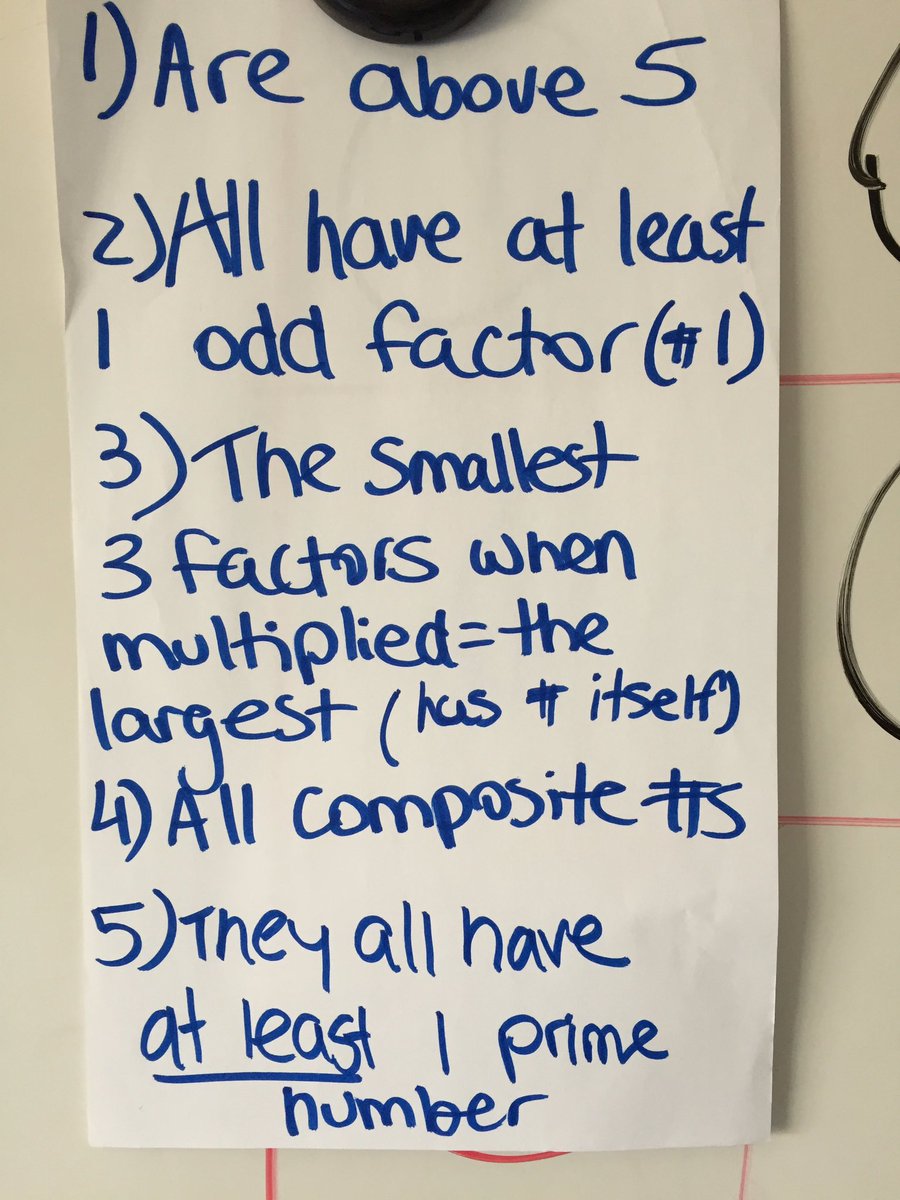 1) Are above 5
2) All have at least
1 odd factor (#1)
3) The smallest
3 factors when
multiplied = the
largest (has # itself)
4) All composite #s
5) They all have
at least 1 prime
number